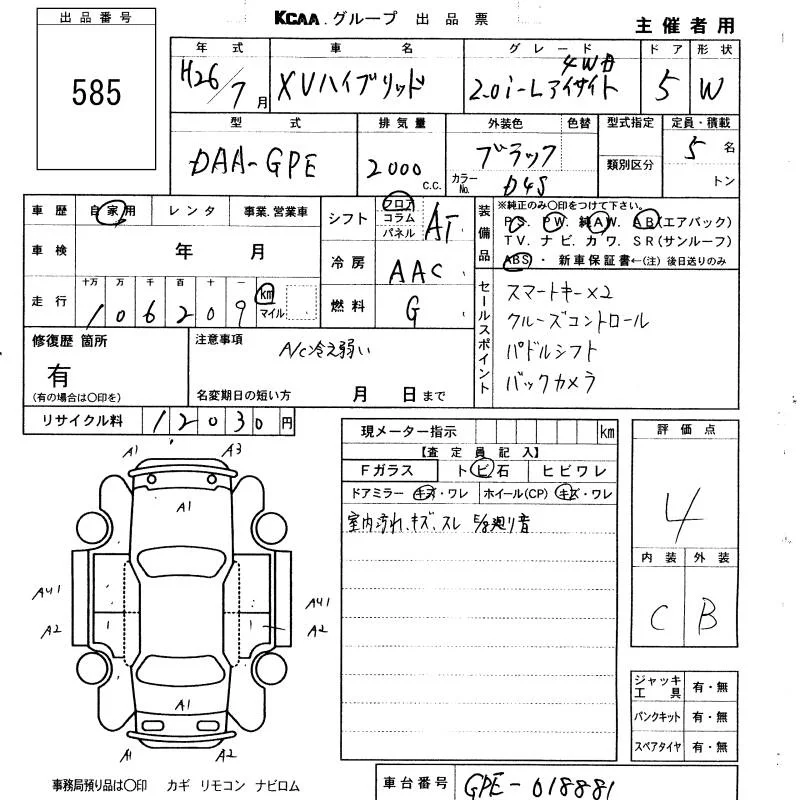 出品番号
585
KCAA.グループ 出品票
主催者用
年式 車名 グレード ドア 形状
H26/7月 XVハイブリッド 4WD 2.0i-Lアイサイト 5 W
型式 排気量 外装色 色替 型式指定 定員・積載
DAA-GPE 2000 c.c. ブラック 5名
カラーNo. D4S 類別区分 トン
車歴 自家用 レンタ 事業.営業車
車検 年 月
走行 十万 万 千 百 十 一
106209 km マイル
シフト フロア コラム パネル AT
冷房 AAC
燃料 G
装備品
※純正のみ○印をつけて下さい。
PS. PW. 純AW. AB(エアバック)
TV. ナビ. カワ. SR(サンルーフ)
ABS・ 新車保証書←(注) 後日送りのみ
セールスポイント
スマートキー×2
クルーズコントロール
パドルシフト
バックカメラ
修復歴 箇所
有
(有の場合は○印を)
注意事項
A/C冷え弱い
名変期日の短い方 月 日まで
リサイクル料 12030円
現メーター指示 km
【査定員記入】
Fガラス トビ石 ヒビワレ
ドアミラー キズ・ワレ ホイール(CP) キズ・ワレ
室内汚れ、キズ、スレ E/g廻り音
評価点
4
内装 外装
C B
ジャッキ工具 有・無
パンクキット 有・無
スペアタイヤ 有・無
A1 A3
A1
A41 A41
A2 A2
A1
A1 A2
事務局預り品は○印 カギ リモコン ナビロム
車台番号 GPE-018881